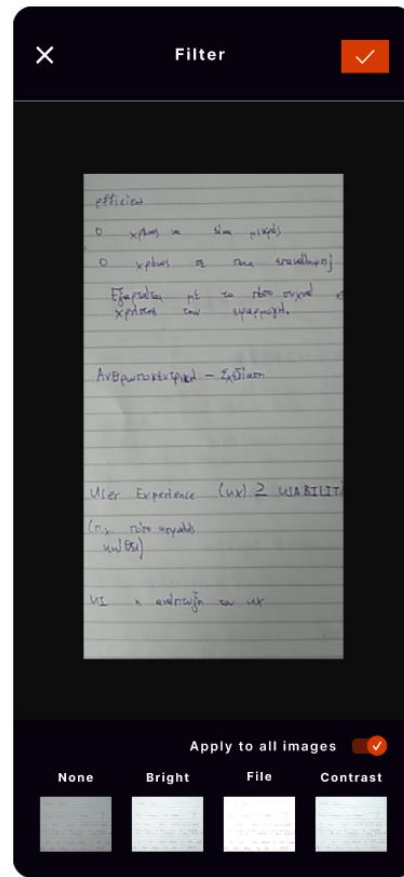 Filter
efficient
Ο χρόνος να είναι μικρός
Ο χρόνος σε ποια επανάληψη
Εξαρτάται με το πόσο συχνά
χρήστης την εφαρμογή.
Ανθρωποκεντρική – Σχεδίαση
User Experience (UX) ≥ USABILIT
(π.χ. πόσο
UI η ανάπτυξη του UX
Apply to all images
None Bright File Contrast